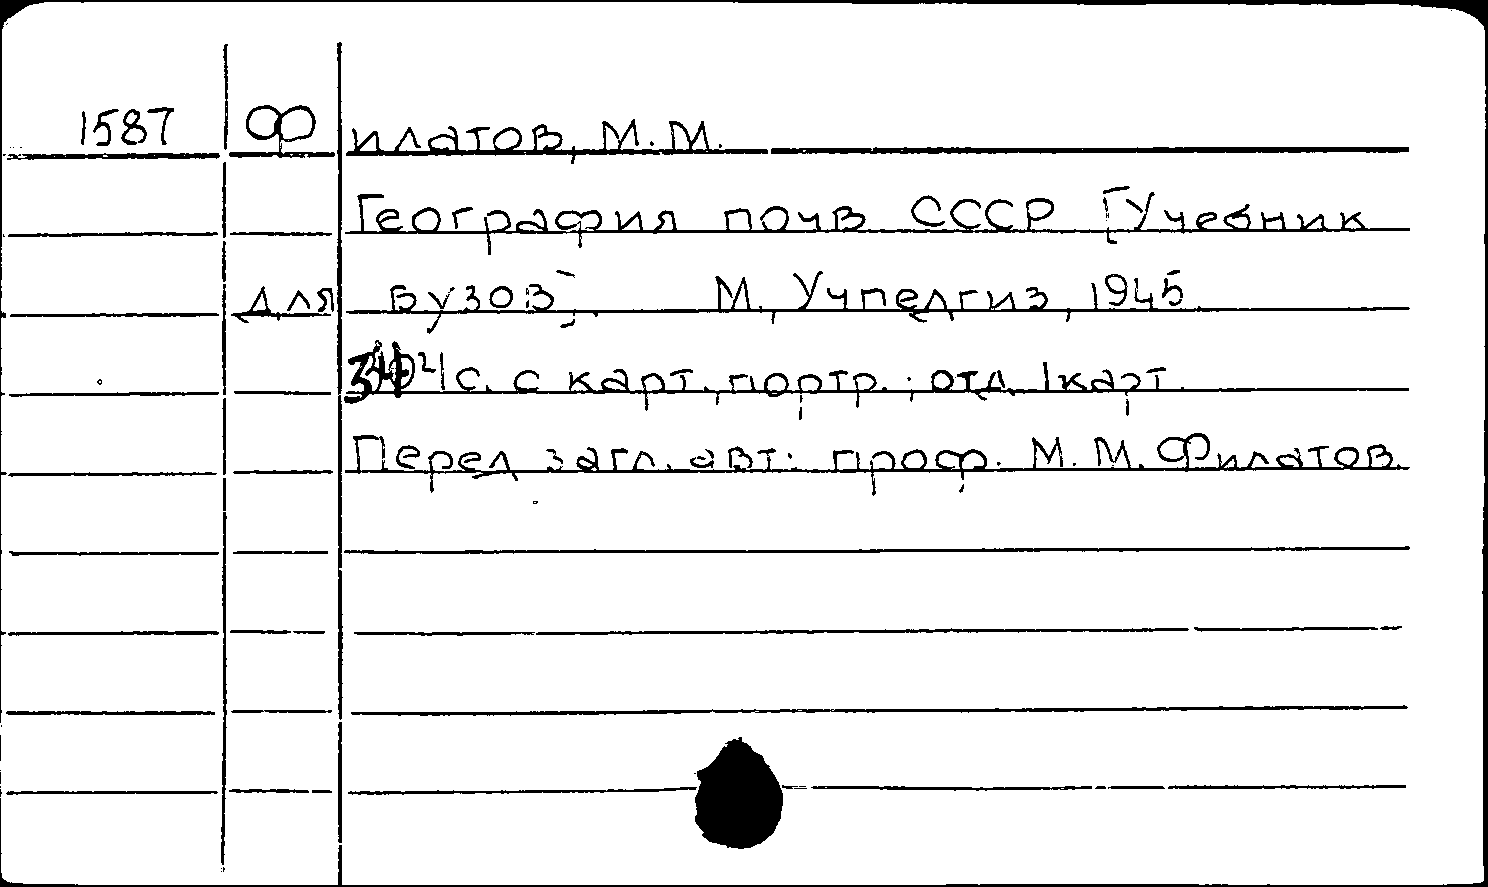 1587 Филатов, М.М.
География почв СССР [Учебник
для вузов]. М., Учпедгиз, 1945.
с. с карт., портр.; отд. 1 карт.
Перед загл. авт: проф. М. М. Филатов.